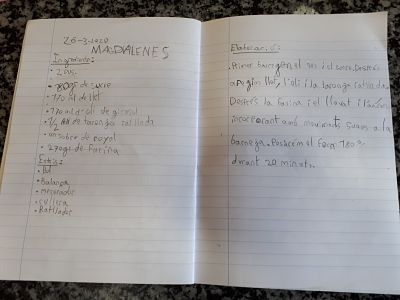 26-3-2020
MAGDALENES
Ingredients:
• 2 ous
• 200g de sucre
• 170 ml de llet
• 170 ml d'oli de girasol
• 1/2 de taronja rallada
• un sobre de royal
• 270gr de farina
Estris:
• Bol
• Balança
• Mesurador
• cullera
• Ratllador
Elaboració:
• Primer barregen el ous i el sucre. Després
apogim llet, l'oli i la taronja rallada.
Després la farina i el llevat i l'anirem
incorporant amb moviments suaus a la
barreja. Posarem el forn 180º
durant 20 minuts.